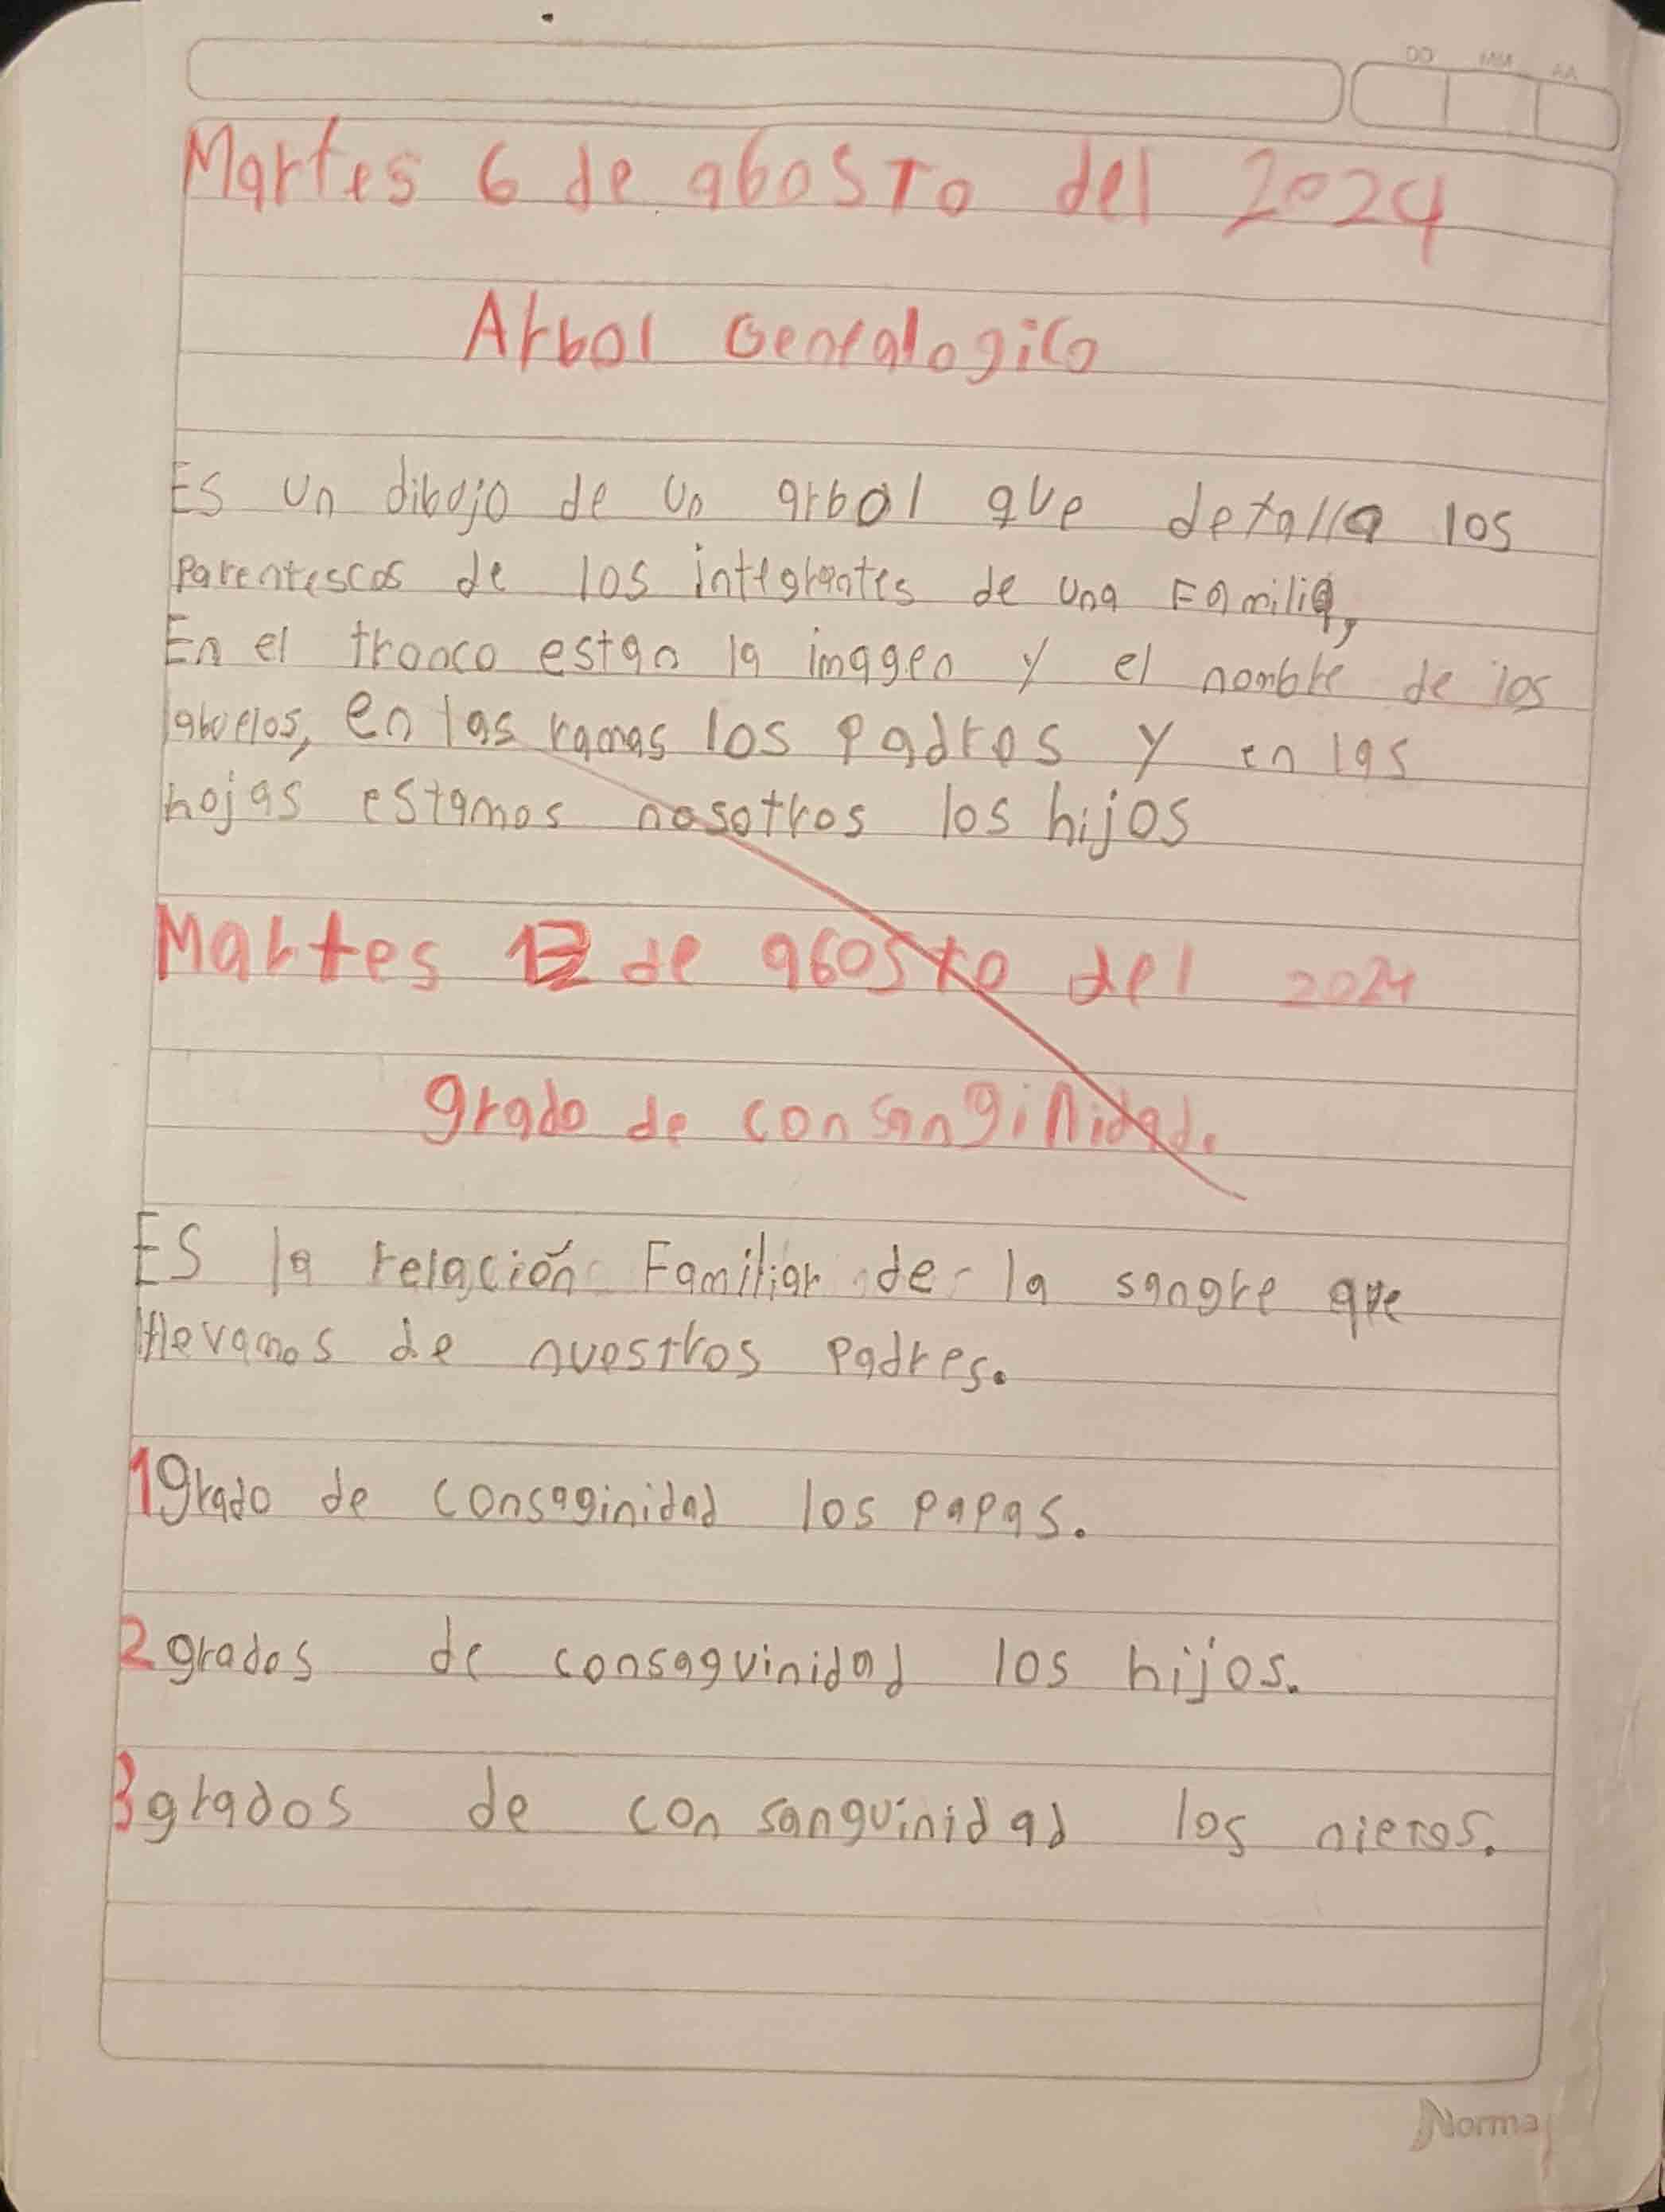 DD MM AA
Martes 6 de agosto del 2024
Arbol Genealogico
Es un dibujo de un arbol que detalla los
parentescos de los integrantes de una Familia,
En el tronco estan la imagen y el nombre de los
abuelos, en las ramas los padros y en las
hojas estamos nosotros los hijos
Martes 13 de agosto del 2024
grado de consanginidad.
Es la relación Familiar de la sangre que
llevamos de nuestros padres.
1 grado de consaginidad los papas.
2 grados de consaguinidad los hijos.
3 grados de consanguinidad los nietos.
Norma